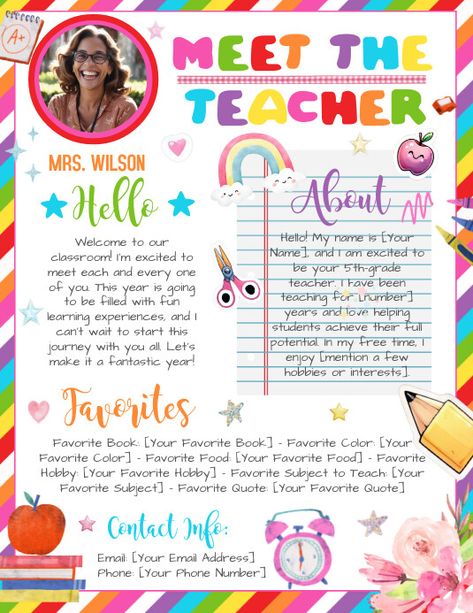 A+
MEET THE
TEACHER
MRS. WILSON
Hello
Welcome to our
classroom! I'm excited to
meet each and every one
of you. This year is going
to be filled with fun
learning experiences, and I
can't wait to start this
journey with you all. Let's
make it a fantastic year!
About
Hello! My name is [Your
Name], and I am excited to
be your 5th-grade
teacher. I have been
teaching for [number]
years and love helping
students achieve their full
potential. In my free time, I
enjoy [mention a few
hobbies or interests].
Favorites
Favorite Book: [Your Favorite Book] - Favorite Color: [Your
Favorite Color] - Favorite Food: [Your Favorite Food] - Favorite
Hobby: [Your Favorite Hobby] - Favorite Subject to Teach: [Your
Favorite Subject] - Favorite Quote: [Your Favorite Quote]
Contact Info:
Email: [Your Email Address]
Phone: [Your Phone Number]